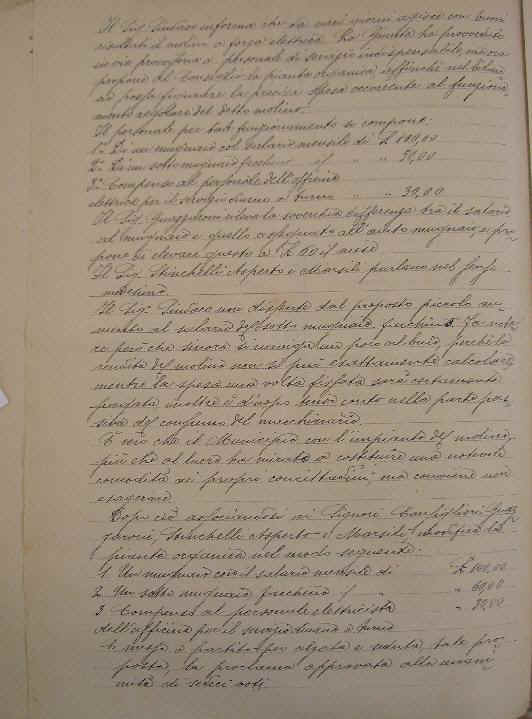 Il Sig. Sindaco informa che da varii giorni agisce con buoni
risultati il molino a forza elettrica. La Giunta ha provveduto
in via provvisoria al personale di servizio indispensabile, ma ora
propone al Consiglio la pianta organica affinché nel bilan
cio possa figurare la precisa spesa occorrente al funziona
mento regolare del detto molino.
Il personale per tale funzionamento si compone:
1° Di un mugnaio col salario mensile di £ 100,00
2° Di un sotto mugnaio facchino id " 50,00
3° Compenso al personale dell'officina
elettrica per il servizio diurno a turno " " 30,00
Il Sig. rileva la soverchia differenza tra il salario
al mugnaio e quello assegnato all'aiuto mugnaio, e pro
pone di elevare questo a £ 60 il mese
Il Sig. Stinchelli Asperto e Marsili parlano nel
medesimo.
Il Sig. Sindaco non dissente dal proposto piccolo au
mento al salario del sotto mugnaio facchino. Fa nota
re però che sinora si naviga un poco al buio, perché la
rendita del molino non si può esattamente calcolare,
mentre la spesa una volta fissata sarà certamente
pagata inoltre è d'uopo tener conto nella parte pas
siva del consumo del macchinario
È vero che il Municipio con l'impianto del molino,
più che al lucro ha mirato a costituire una notevole
comodità ai propri concittadini, ma conviene non
esagerare
Dopo ciò associandosi ai Signori
Stinchelli Asperto e Marsili modifica la
pianta organica nel modo seguente:
1 Un mugnaio con il salario mensile di £ 100,00
2 Un sotto mugnaio facchino " " 60,00
3 Compenso al personale elettricista " 30,00
dell'officina per il servizio diurno a turno
E messa a partito per alzata e seduta tale pro
posta, la proclama approvata alla unani
mità di sedici voti